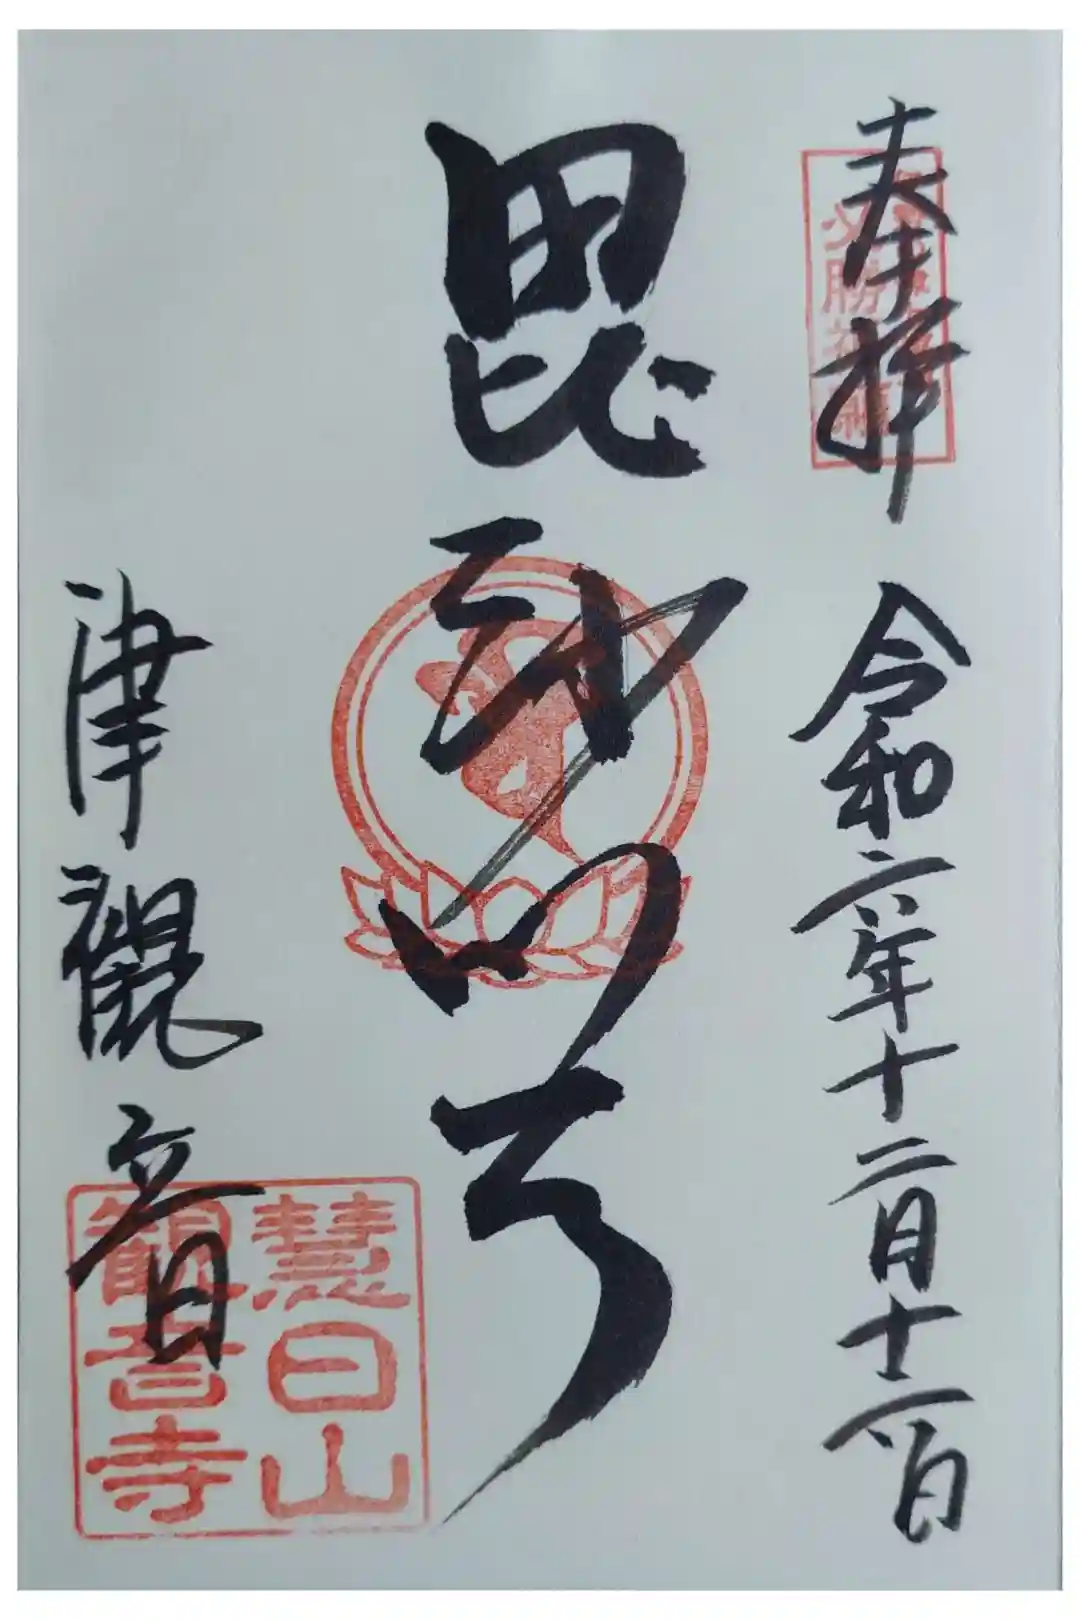 奉拝
必勝祈願
令和六年十二月十六日
毘沙門天
津觀音
慧日山
観音寺